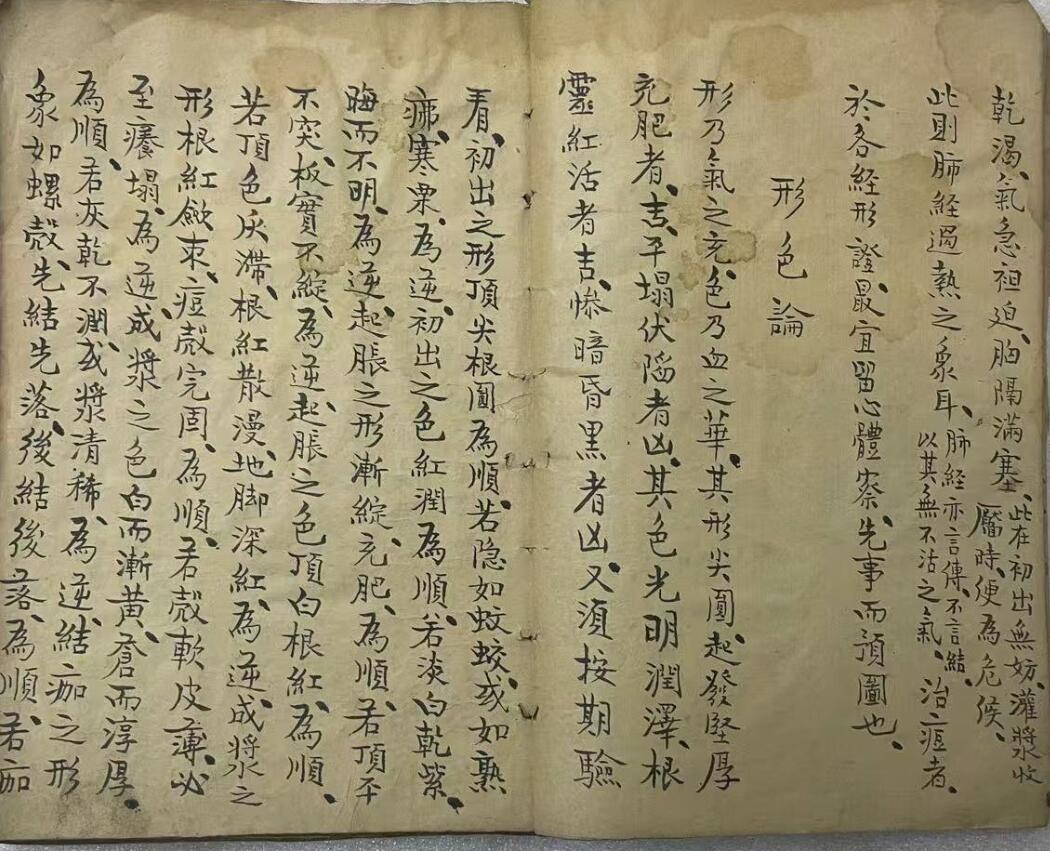 乾渴、氣急袒迫、胸隔滿塞、此在初出無妨、灌漿收
靨時、便為危候、
此則肺經過熱之象耳、肺經亦言傳、不言結、
以其無不活之氣、治痘者、
於各經形證、最宜留心體察、先事而預圖也、
形色論
形乃氣之充、色乃血之華、其形尖圓、起發堅厚
充肥者、吉、平塌伏陷者凶、其色光明潤澤、根
靈紅活者吉、慘暗昏黑者凶、又須按期驗
看、初出之形頂尖根圓為順、若隐如蚊蛟、或如熟
痱、寒粟、為逆、初出之色紅潤為順、若淡白乾紫、
晦而不明、為逆、起脹之形漸綻、充肥、為順、若頂平
不突、板實不綻、為逆、起脹之色頂白根紅、為順、
若頂色灰滯、根紅散漫、地脚深紅、為逆、成漿之
形根紅斂束、痘殼完固、為順、若殼軟皮薄、必
至癢塌、為逆、成漿之色白而漸黃、蒼而淳厚、
為順、若灰乾不潤、或漿清稀、為逆、結痂之形
象如螺殼、先結先落、後結後落、為順、若痂